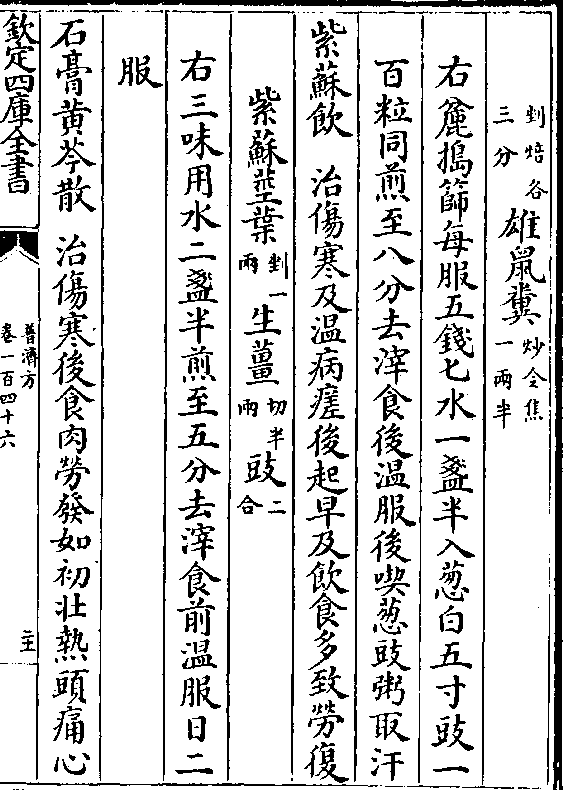 剉焙各三分雄鼠糞炒令焦一兩半
右麄搗篩每服五錢匕水一盞半入葱白五寸豉一
百粒同煎至八分去滓食後温服後喫葱豉粥取汗
紫蘇飲　治傷寒及温病瘥後起早及飲食多致勞復
紫蘇莖葉剉一兩生薑切半兩豉二合
右三味用水二盞半煎至五分去滓食前温服日二
服
石膏黄芩散　治傷寒後食肉勞發如初壯熱頭痛心
欽定四庫全書
普濟方
卷一百四十六